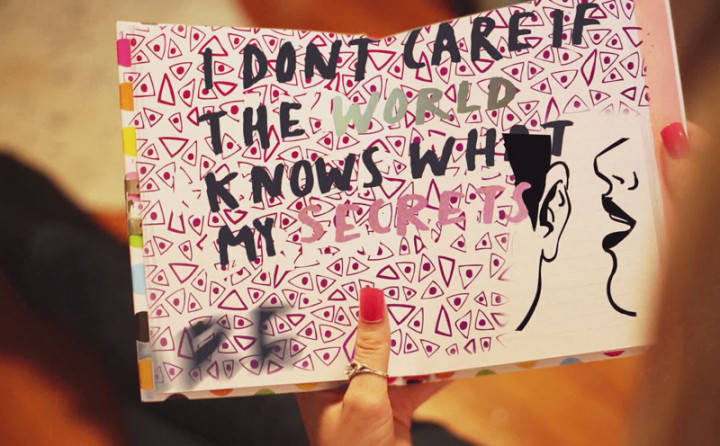 I DONT CARE IF
THE WORLD
KNOWS WHAT
MY SECRETS